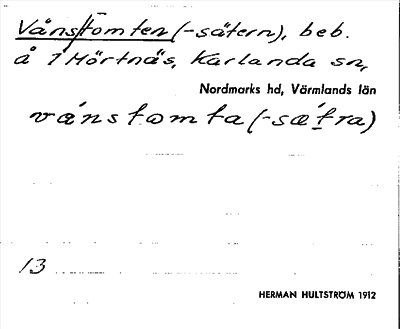 Vånstomten (-sätern), beb.
å 1 Mörtnäs, Karlanda sn,
Nordmarks hd, Värmlands län
vánstomta (-sǽtra)
13
HERMAN HULTSTRÖM 1912